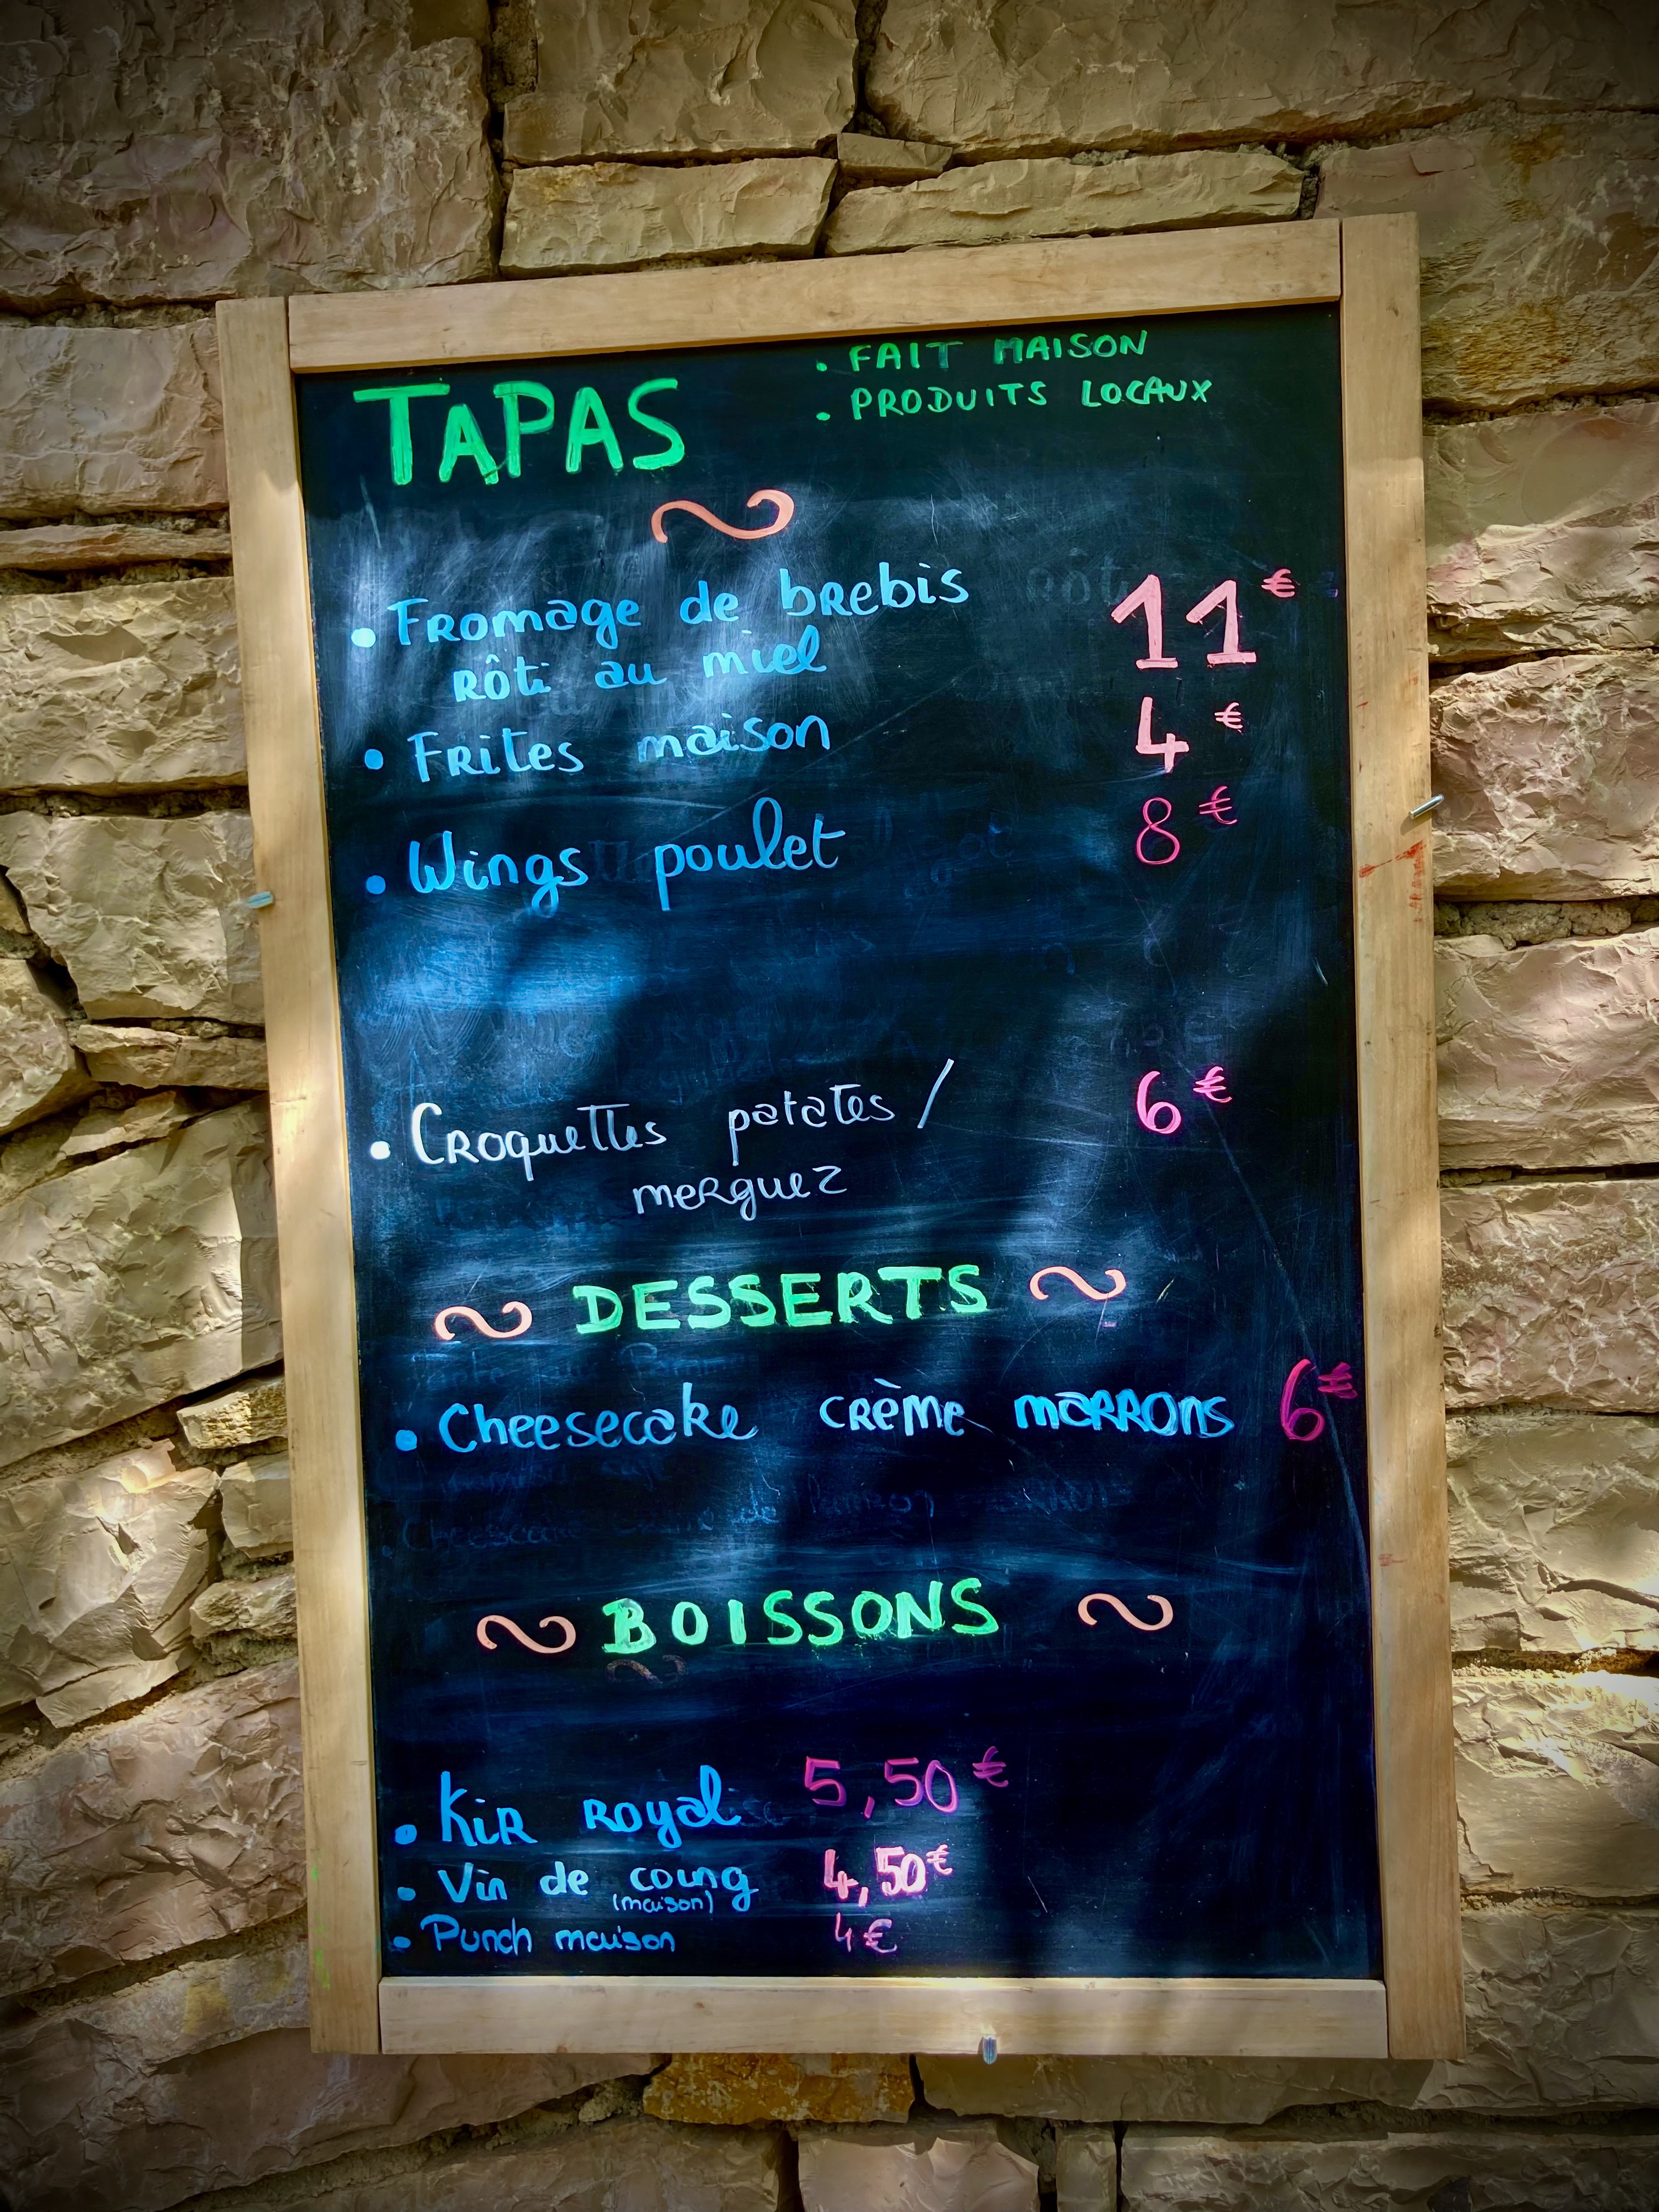 TAPAS
• FAIT MAISON
• PRODUITS LOCAUX
• Fromage de brebis 11€
rôti au miel
• Frites maison 4€
• Wings poulet 8€
• Croquettes patates / 6€
merguez
~ DESSERTS ~
• Cheesecake crème marrons 6€
~ BOISSONS ~
• Kir Royal 5,50€
• Vin de coing 4,50€
(maison)
• Punch maison 4€